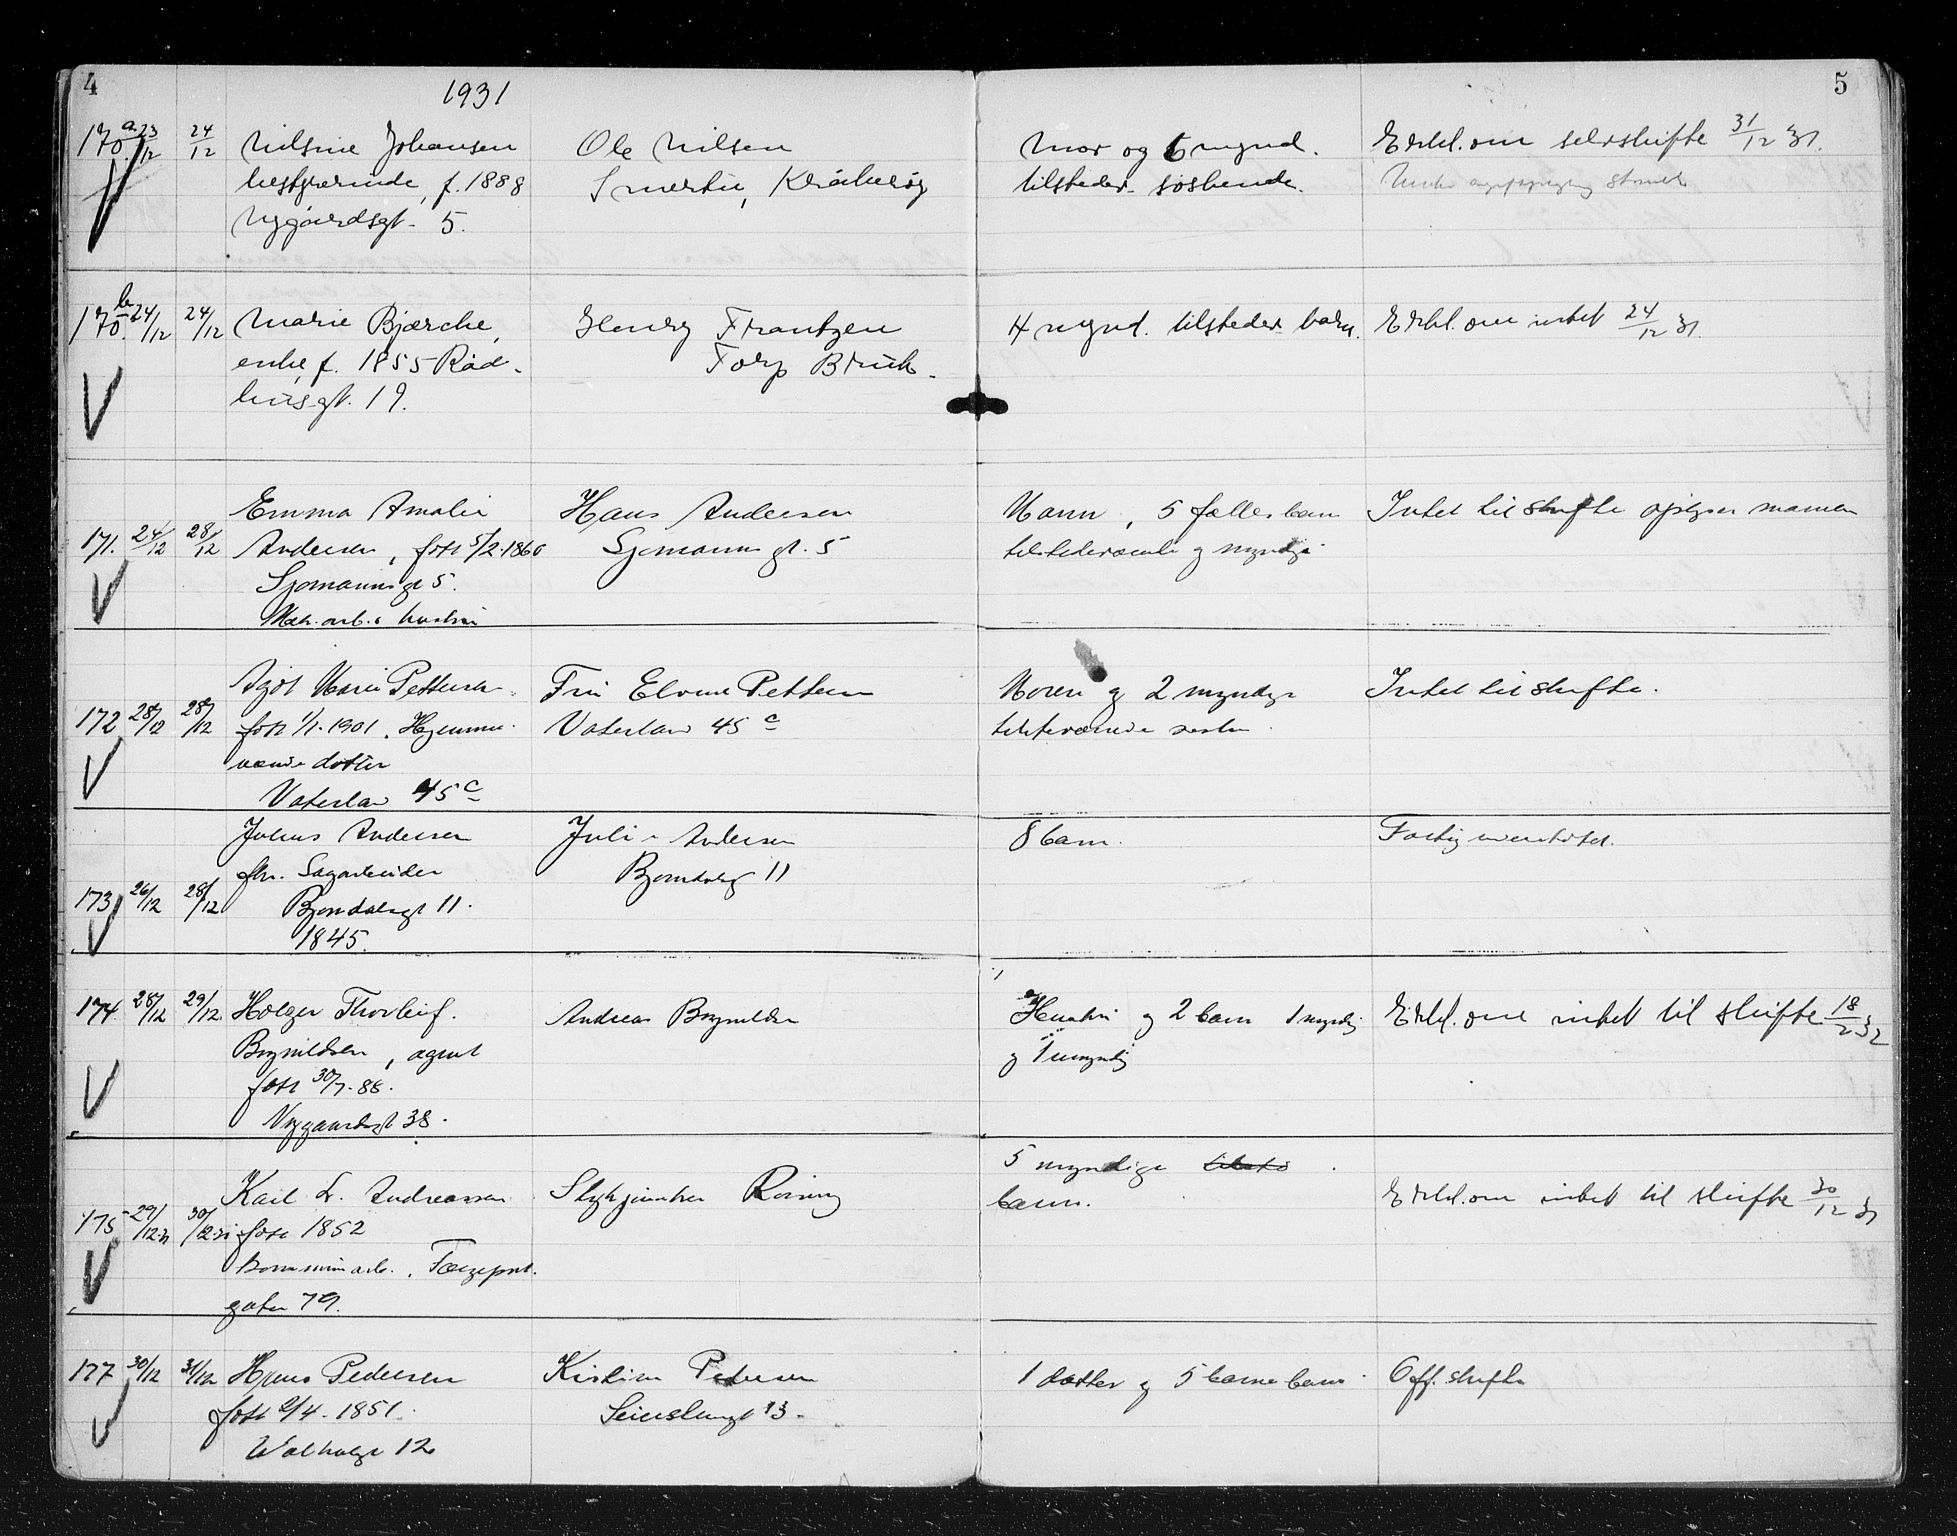 4
1931
5
170 a. 23/12 24/12 Nilsine Johansen Ole Nilsen Mor og 6 mynd. Erkl. om selvskifte 31/12 31.
bestyrerinde, f. 1888 Smertu, Kråkerøy tilstedev. søskende.
Nygårdsgt. 5.
170 b. 24/12 24/12 Marie Bjærche, Henry Frantzen 4 mynd. tilstedev. barn. Erkl. om intet 24/12 31.
enke, f. 1855 Råd- Torp Bruk.
husgt. 19.
Emma Amalie Hans Andersen Mann, 5 fælles barn Intet til skifte opgiver mannen
171. 24/12 28/12 Andersen, født 5/2-1860 Sjømannsgt. 5 tilstedeværende og myndige
Sjømannsgt 5.
Mek. arb.s hustru
Marie Pettersen Fru Pettersen Moren og 2 myndige Intet til skifte.
172 28/12 28/12 født 1/1-1901. Hjemme- Vaterland 45 c
værende datter
Vaterland 45 c
Julius Andersen Andersen 8 barn.
fhv. Sagarbeider Bjørndalsgt 11
173 26/12 28/12 Bjørndalsgt 11.
1845.
174 28/12 29/12 Holger Thorleif Andreas Brynildsen Hustru og 2 barn 1 myndig Erkl. om intet til skifte 18/2 32
Brynildsen, agent og 1 umyndig
født 30/7-88.
Nygaardsgt 38.
5 myndige
Karl L. Andreassen Stykjunker barn. Erkl. om intet til skifte 30/12 31
175 29/12-31 30/12-31 født 1852
Kommunearb. Færgeport-
gaten 79.
177 30/12 31/12 Hans Pedersen Kristian Pedersen 1 datter og 5 barnebarn. Off. skifte
født 2/4-1851. 13.
Walhalgt 12